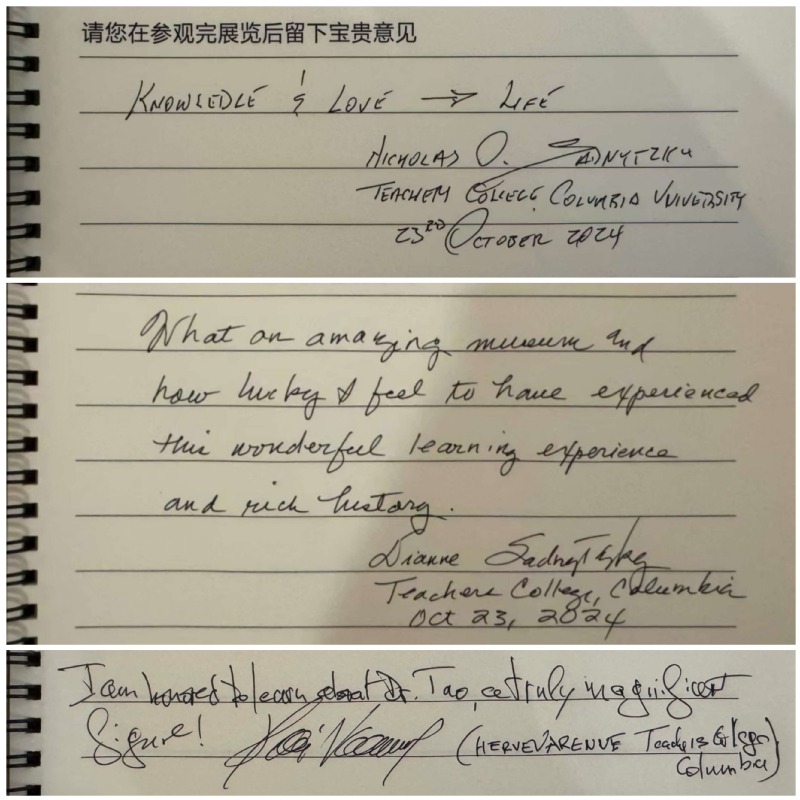 请您在参观完展览后留下宝贵意见
KNOWLEDLE & LOVE → LIFE
NICHOLAS O. SADNYTZKY
TEACHERS COLLEGE, COLUMBIA UNIVERSITY
23RD OCTOBER 2024
What an amazing museum and
how lucky I feel to have experienced
this wonderful learning experience
and rich history.
Dianne Sadnytzky
Teachers College, Columbia
Oct 23, 2024
I am honored to learn about Dr. Tao, a truly magnificent
figure! (HERVE VARENNE Teachers College
Columbia)